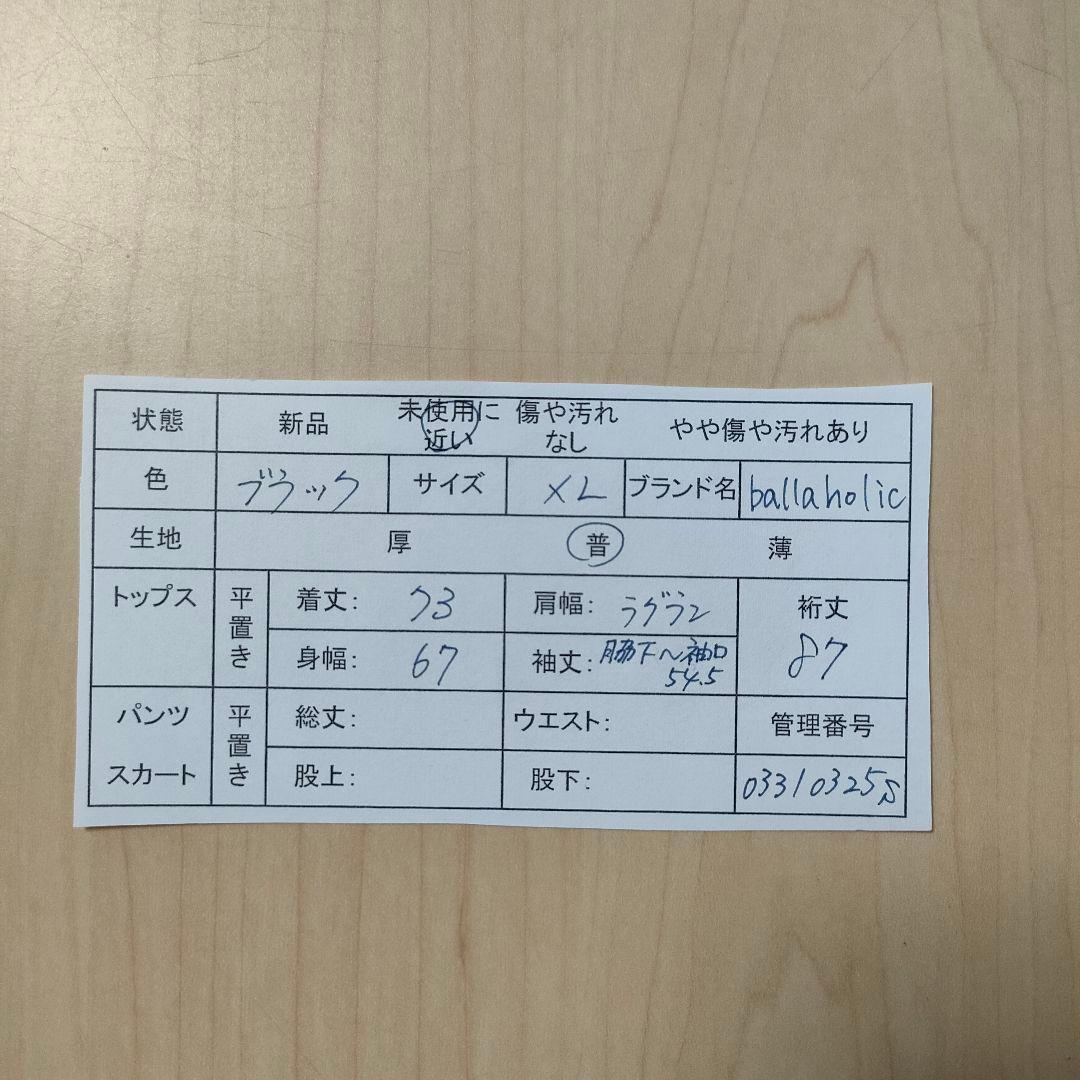 状態 新品 未使用に近い 傷や汚れなし やや傷や汚れあり
色 ブラック サイズ XL ブランド名 ballaholic
生地 厚 普 薄
トップス 平置き 着丈: 73 肩幅: ラグラン 裄丈
身幅: 67 袖丈: 脇下～袖口 54.5 87
パンツ 平置き 総丈: ウエスト: 管理番号
スカート 股上: 股下: 03310325S